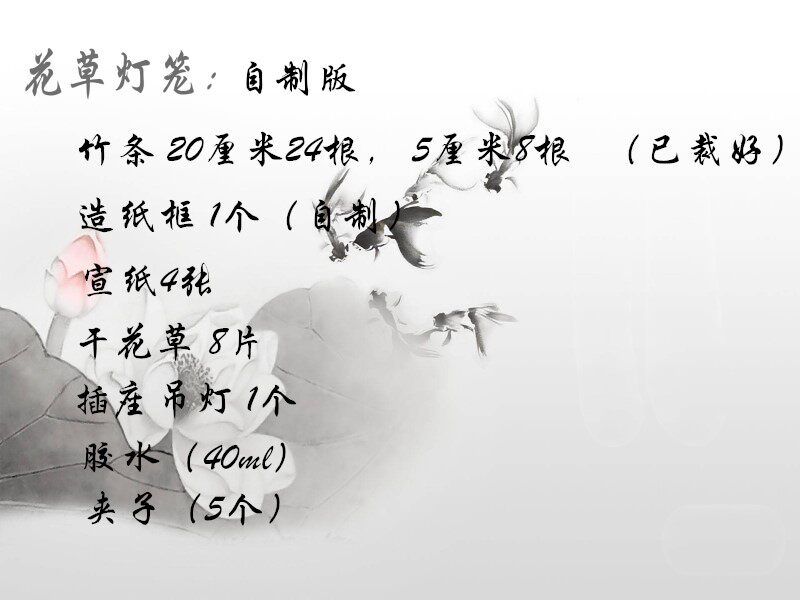 花草灯笼：自制版
竹条 20厘米24根， 5厘米8根 （已裁好）
造纸框 1个（自制）
宣纸4张
干花草 8片
插座吊灯 1个
胶水（40ml）
夹子（5个）